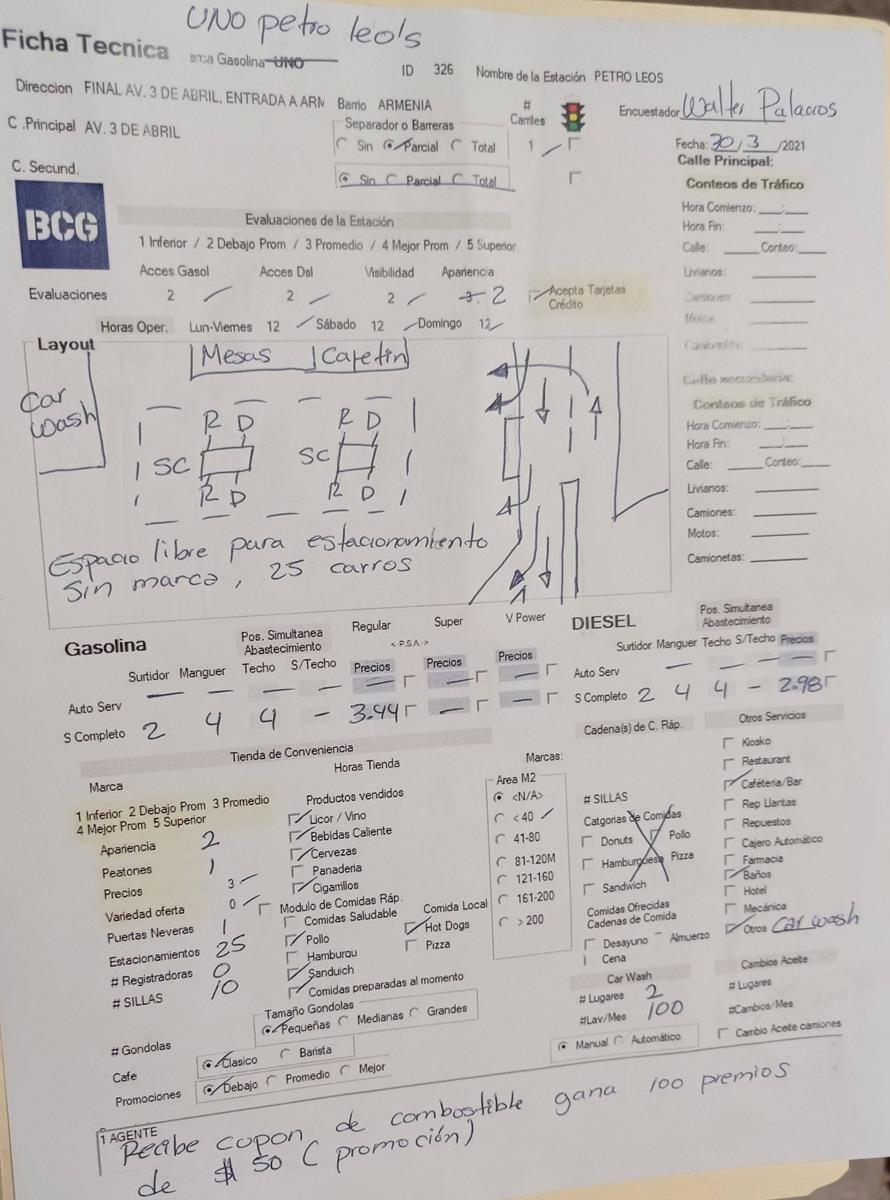 UNO petro leo's
Ficha Tecnica
arca Gasolina UNO
ID 326 Nombre de la Estación PETRO LEOS
Direccion FINAL AV. 3 DE ABRIL, ENTRADA A ARM Barrio ARMENIA
# Carriles
Encuestador Walter Palacios
C .Principal AV. 3 DE ABRIL
Separador o Barreras
Sin Parcial Total 1
Fecha: 30/3/2021
C. Secund.
Sin Parcial Total
Calle Principal:
Conteos de Tráfico
Hora Comienzo: ___:___
Hora Fin: ___:___
Calle: ____ Conteo: ____
Livianos:
Camiones:
Motos:
Camionetas:
BCG
Evaluaciones de la Estación
1 Inferior / 2 Debajo Prom / 3 Promedio / 4 Mejor Prom / 5 Superior
Acces Gasol Acces Dsl Visibilidad Apariencia
Evaluaciones 2 2 2 2
Acepta Tarjetas Crédito
Horas Oper. Lun-Viernes 12 Sábado 12 Domingo 12
Layout
Mesas Cafetin
Car wash
R D R D
SC SC
R D R D
Espacio libre para estacionamiento
Sin marca, 25 carros
Calle secundaria:
Conteos de Tráfico
Hora Comienzo: ___:___
Hora Fin: ___:___
Calle: ____ Conteo: ____
Livianos:
Camiones:
Motos:
Camionetas:
Gasolina
Pos. Simultanea Abastecimiento
Regular Super V Power
< P.S.A. >
Surtidor Manguer Techo S/Techo Precios Precios Precios
Auto Serv — — — — — — —
S Completo 2 4 4 - 3.44 — —
DIESEL
Pos. Simultanea Abastecimiento
Surtidor Manguer Techo S/Techo Precios
Auto Serv — — — —
S Completo 2 4 4 - 2.98
Tienda de Conveniencia
Marca
Horas Tienda
1 Inferior 2 Debajo Prom 3 Promedio
4 Mejor Prom 5 Superior
Apariencia 2
Peatones 1
Precios 3
Variedad oferta 0
Puertas Neveras 1
Estacionamientos 25
# Registradoras 0
# SILLAS 10
# Gondolas
Cafe
Promociones
Productos vendidos
Licor / Vino
Bebidas Caliente
Cervezas
Panaderia
Cigarrillos
Modulo de Comidas Ráp.
Comidas Saludable
Pollo
Hamburqu
Sanduich
Comidas preparadas al momento
Comida Local
Hot Dogs
Pizza
Tamaño Gondolas
Pequeñas Medianas Grandes
Clasico Barista
Debajo Promedio Mejor
Marcas:
Area M2
<N/A>
< 40
41-80
81-120M
121-160
161-200
> 200
Cadena(s) de C. Ráp.
# SILLAS
Catgorias de Comidas
Donuts Pollo
Hamburguese Pizza
Sandwich
Comidas Ofrecidas
Cadenas de Comida
Desayuno Almuerzo
Cena
Car Wash
# Lugares 2
#Lav/Mes 100
Manual Automático
Otros Servicios
Kiosko
Restaurant
Caféteria/Bar
Rep Llantas
Repuestos
Cajero Automático
Farmacia
Baños
Hotel
Mecánica
Otros Car wash
Cambios Aceite
# Lugares
#Cambios/Mes
Cambio Aceite camiones
1 AGENTE
Recibe cupon de combostible gana 100 premios
de $ 50 ( promoción)